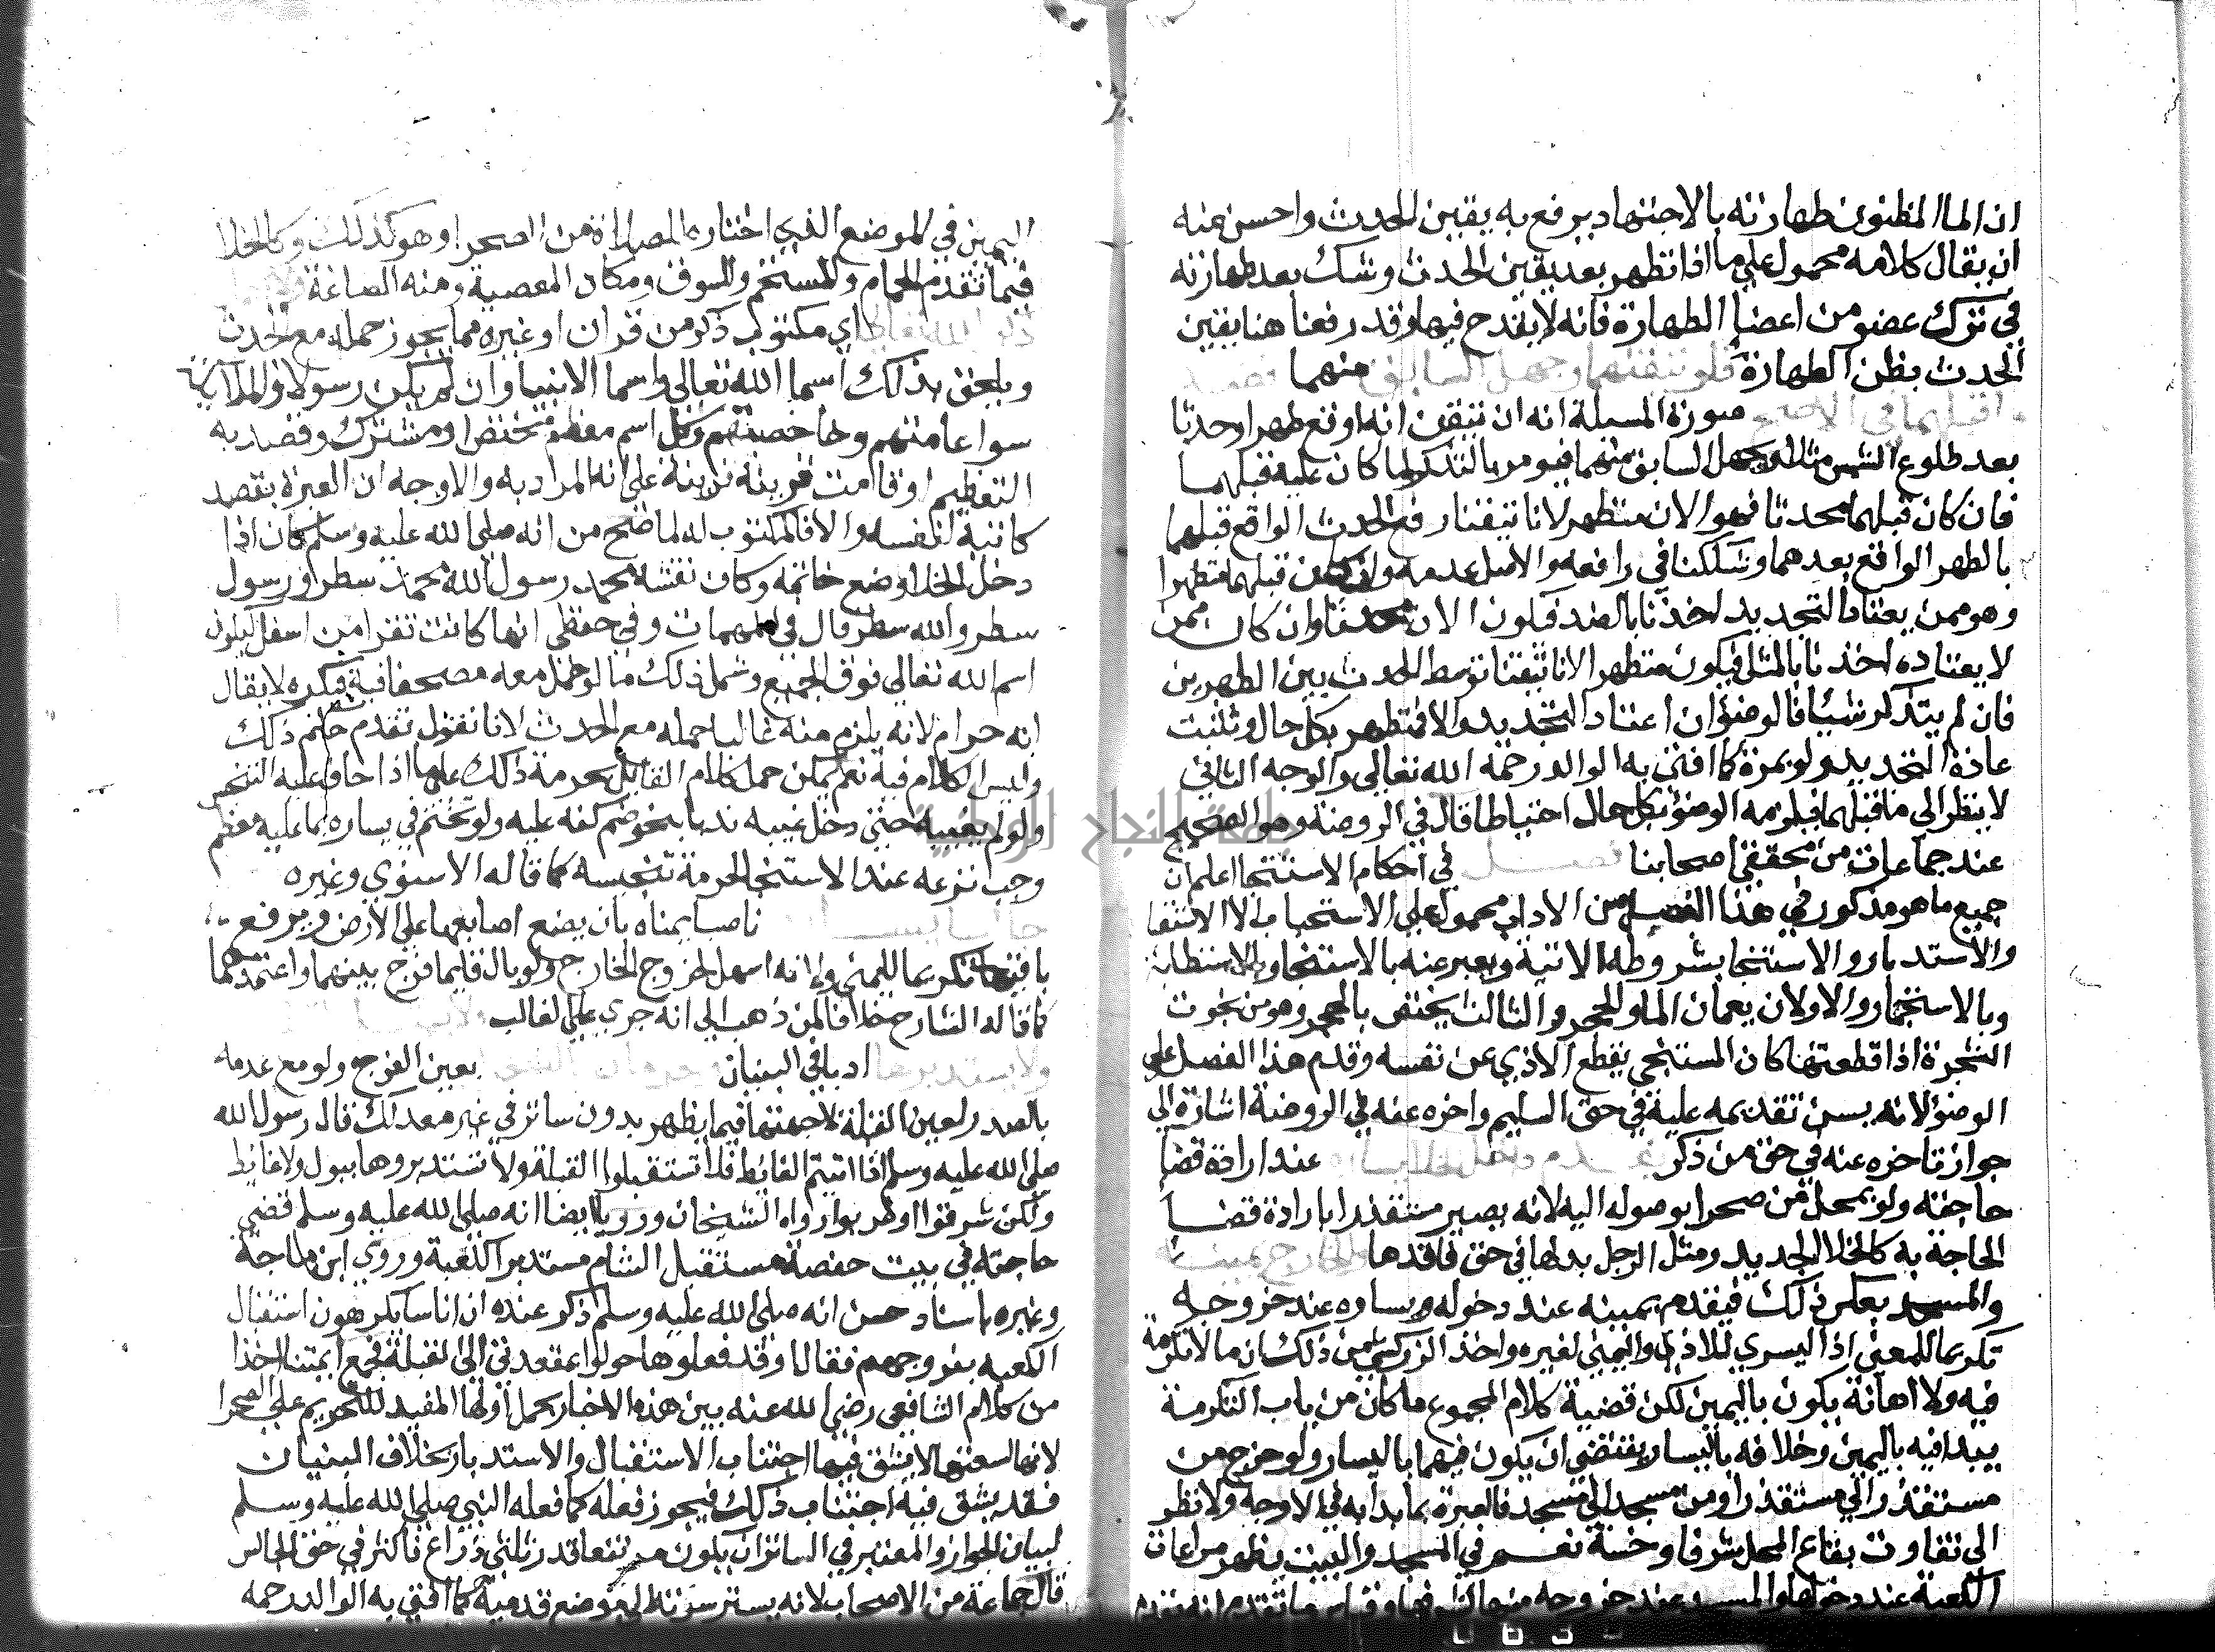 ان الما المظنون طهارته بالاجتهاد يرفع به يقين الحدث واحسن منه
ان يقال كلامه محمول على ما اذا تطهر بعد يقين الحدث وشك بعد طهارته
في ترك عضو من اعضا الطهارة فانه لا يقدح فيها وقد رفعنا هنا يقين
الحدث بظن الطهارة فلو تيقنهما وجهل السابق منهما فضد
ما قبلهما في الاصح صورة المسيلة انه ان تيقن انه اوقع طهرا وحدثا
بعد طلوع الشمس مثلا وجهل السابق منهما فيومر بالتذكر لما كان عليه قبلهما
فان كان قبلهما محدثا فهو الان متطهر لانا تيقنا رفع الحدث الواقع قبلهما
بالطهر الواقع بعدهما وشككنا في رافعه والاصل عدمه وان كان قبلهما متطهرا
وهو ممن يعتاد التجديد اخذنا بالضد فيكون الان محدثا وان كان ممن
لا يعتاده اخذنا بالمثل فيكون متطهرا لانا تيقنا توسط الحدث بين الطهرين
فان لم يتذكر شيئا فالوضوء ان اعتاد التجديد والا فمتطهر بكل حال وتثبت
عادة التجديد ولو بمرة كما افتى به الوالد رحمه الله تعالى والوجه الثاني
لا ينظر الى ما قبلهما فيلزمه الوضوء بكل حال احتياطا قال في الروضة وهو الصحيح
عند جماعات من محققي اصحابنا فصل في احكام الاستنجا اعلم ان
جميع ما هو مذكور في هذا الفصل من الاداب محمول على الاستحباب الا الاستقبا
والاستدبار والاستنجا بشروطه الاتية ويعبر عنه بالاستنجا وبالاستطابة
وبالاستجمار والاولان يعمان الما والحجر والثالث يختص بالحجر وهو من نجوت
الشجرة اذا قطعتها كان المستنجي يقطع الاذي عن نفسه وقدم هذا الفصل على
الوضوء لانه يسن تقديمه عليه في حق السليم واخره عنه في الروضة اشارة الى
جواز تاخره عنه في حق من ذكر عند ارادة قضا
حاجته ولو بمحل من صحرا بوصوله اليه لانه يصير مستقذرا بارادة قضا
الحاجة به كالخلا الجديد ومثل الرجل بدلها في حق فاقدها والخارج يمينه
والمسجد بعكس ذلك فيقدم يمينه عند دخوله ويساره عند خروجه
تكريما لليمنى اذ اليسرى للاذى واليمنى لغيره واخذ الزركشي من ذلك ان ما لا تكرمة
فيه ولا اهانة يكون باليمين لكن قضية كلام المجموع ما كان من باب التكرمة
يبدا فيه باليمين وخلافه باليسار يقتضي ان يكون فيهما باليسار ولو خرج من
مستقذر الى مستقذر او من مسجد الى مسجد فالعبرة بما بدا به في الاوجه ولا نظر
الى تفاوت بقاع المحل شرفا وخسة نعم في المسجد والبيت يظهر مراعات
الكعبة عند دخولها والمسجد عند خروجه منها لشرفها وقياس ما تقدم انه يقدم
اليمين في الموضع الذي اختاره للصلاة من الصحرا وهو كذلك وكالخلا
فيما تقدم الحمام والمستحم والسوق ومكان المعصية ومنه الصاغة
ذكر الله تعالى اي مكتوب ذكر من قران او غيره مما يجوز حمله مع الحدث
ويلحق بذلك اسما الله تعالى واسما الانبيا وان لم يكن رسولا والملايكة
سوا عامتهم وخاصتهم وكل اسم معظم مختص او مشترك وقصد به
التعظيم او قامت قرينة قرينة على انه المراد به والاوجه ان العبرة بقصد
كاتبه لنفسه والا فالمكتوب له لما صح من انه صلى الله عليه وسلم كان اذا
دخل الخلا وضع خاتمه وكان نقشه محمد رسول الله محمد سطر ورسول
سطر والله سطر قال في المهمات وفي حفظي انها كانت تقرا من اسفل ليكون
اسم الله تعالى فوق الجميع وشمل ذلك ما لو حمل معه مصحفا فيه فيكره لا يقال
انه حرام لانه يلزم منه غالبا حمله مع الحدث لانا نقول تقدم حكم ذلك
وليس الكلام فيه نعم يمكن حمل كلام القايل بحرمة ذلك على ما اذا خاف عليه التنجس
ولو لم يغيبه حتى دخل غيبه ندبا بنحو ضم كفه عليه ولو تختم في يساره بما عليه معظم
وجب نزعه عند الاستنجا لحرمة تنجيسه كما قاله الاسنوي وغيره
ناصبا يمناه بان يضع اصابعها على الارض ويرفع
باقيها تكريما لليمنى ولانه اسهل لخروج الخارج ولو بال قايما فرج بينهما واعتمدهما
كما قاله الشارح خلافا لمن ذهب الى انه جري على الغالب
ولا يستدبرها ادبا في البنيان بعين الفرج ولو مع عدمه
بالصدر لعين القبلة لا جهتها فيما يظهر بدون ساتر في غير معد لك قال رسول الله
صلى الله عليه وسلم اذا اتيتم الغايط فلا تستقبلوا القبلة ولا تستدبروها ببول ولا غايط
ولكن شرقوا او غربوا رواه الشيخان ورويا ايضا انه صلى الله عليه وسلم قضى
حاجته في بيت حفصة مستقبل الشام مستدبر الكعبة وروي ابن ماجة
وغيره باسناد حسن انه صلى الله عليه وسلم ذكر عنده ان اناسا يكرهون استقبال
الكعبه بفروجهم فقال اوقد فعلوها حولوا بمقعدتي الى القبلة فجمع ايمتنا اخذا
من كلام الشافعي رضي الله عنه بين هذه الاخبار بحمل اولها المفيد للتحريم على الصحرا
لانها لسعتها لا يشق فيها اجتناب الاستقبال والاستدبار بخلاف البنيان
فقد يشق فيه اجتناب ذلك فيجوز فعله كما فعله النبي صلى الله عليه وسلم
لبيان الجواز والمعتبر في الساتر ان يكون مرتفعا قدر ثلثي ذراع فاكثر في حق الجالس
قال جماعة من الاصحاب لانه يستر سرته الى موضع قدميه كما افتى به الوالد رحمه
جامعة النجاح الوطنية